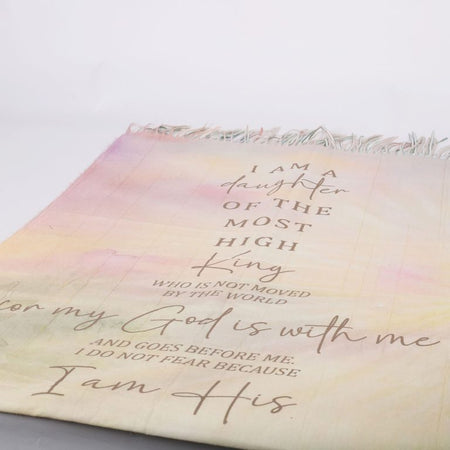 I AM A
daughter
OF THE
MOST
HIGH
King
WHO IS NOT MOVED
BY THE WORLD
my God is with me
AND GOES BEFORE ME.
I DO NOT FEAR BECAUSE
I am His.